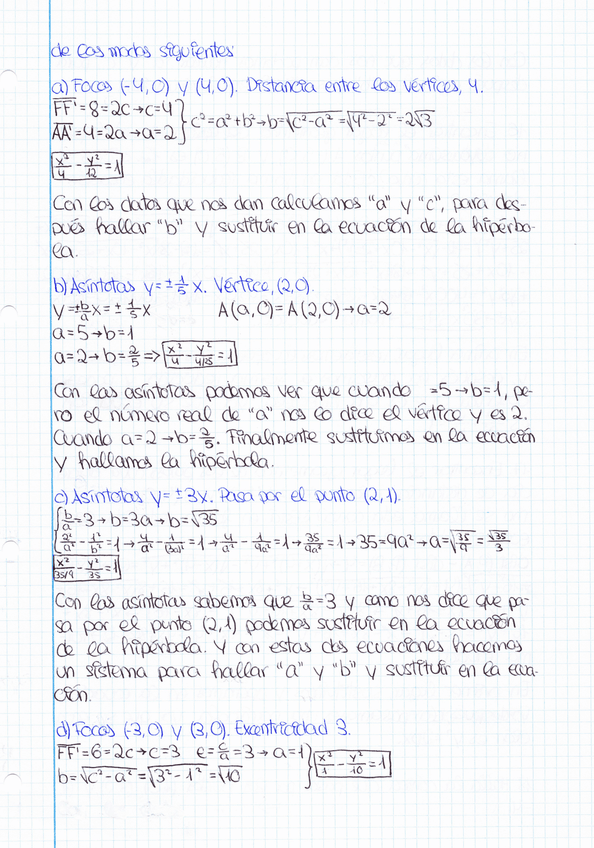 de los modos siguientes
a) Focos (-4,0) y (4,0). Distancia entre los vértices, 4.
FF' = 8 = 2c → c = 4
AA' = 4 = 2a → a = 2 } c² = a² + b² → b = √(c² - a²) = √(4² - 2²) = 2√3
x²/4 - y²/12 = 1
Con los datos que nos dan calculamos "a" y "c", para des-
pués hallar "b" y sustituir en la ecuación de la hipérbo-
la.
b) Asíntotas y = ± 1/5 x. Vértice, (2,0).
y = ±b/a x = ± 1/5 x A(a,0) = A(2,0) → a = 2
a = 5 → b = 1
a = 2 → b = 2/5 => x²/4 - y²/4/25 = 1
Con las asíntotas podemos ver que cuando =5 → b = 1, pe-
ro el número real de "a" nos lo dice el vértice y es 2.
Cuando a = 2 → b = 2/5. Finalmente sustituimos en la ecuación
y hallamos la hipérbola.
c) Asíntotas y = ±3x. Pasa por el punto (2,1).
{ b/a = 3 → b = 3a → b = √35
2²/a² - 1²/b² = 1 → 4/a² - 1/(3a)² = 1 → 4/a² - 1/9a² = 1 → 35/9a² = 1 → 35 = 9a² → a = √(35/9) = √35/3
x²/35/9 - y²/35 = 1
Con las asíntotas sabemos que b/a = 3 y como nos dice que pa-
sa por el punto (2,1) podemos sustituir en la ecuación
de la hipérbola. Y con estas dos ecuaciones hacemos
un sistema para hallar "a" y "b" y sustituir en la ecua-
ción.
d) Focos (-3,0) y (3,0). Excentricidad 3.
FF' = 6 = 2c → c = 3 e = c/a = 3 → a = 1
b = √(c² - a²) = √(3² - 1²) = √10 } x²/1 - y²/10 = 1